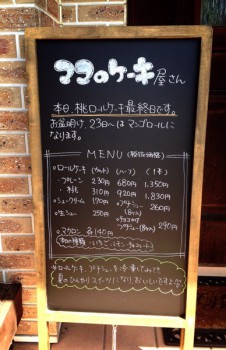 ココのケーキ屋さん
本日、桃ロールケーキ最終日です。
お盆明け、23日〜はマンゴロールに
なります。
MENU (税抜価格)
ロールケーキ (カット) (ハーフ) (1本)
・プレーン 230円 680円 1,350円
・桃 310円 920円 1,830円
シュークリーム 170円 プチシュー 260円
生シュー 250円 (8ヶ入)
チョコがけ
プチシュー(8ヶ入) 290円
マカロン 各140円
いちご・レモン・チョコミント
ロールケーキ、プチシューを冷凍してみて!!
夏のひんやりスイーツになり、おいしいですよ